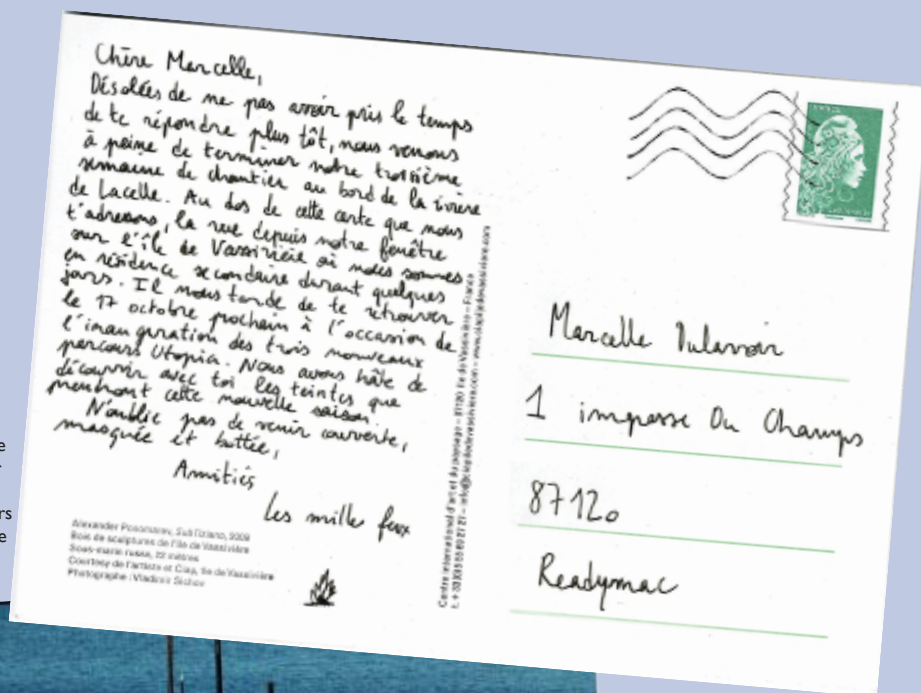 Chère Marcelle,
Désolées de ne pas avoir pris le temps
de te répondre plus tôt, nous venons
à peine de terminer notre troisième
semaine de chantier au bord de la
de Lacelle. Au dos de cette carte que nous
t'adressons, la vue depuis notre fenêtre
sur l'île de Vassivière où nous sommes
en résidence secondaire durant quelques
jours. Il nous tarde de te retrouver
le 17 octobre prochain à l'occasion de
l'inauguration des trois nouveaux
parcours Utopia. Nous avons hâte de
découvrir avec toi les teintes que
prendront cette nouvelle saison.
N'oublie pas de venir couverte,
masquée et bottée,
Amitiés
Les mille feux
Alexander Ponomarev, SubTiziano, 2009
Bois de sculptures de l'île de Vassivière
Sous-marin russe, 22 mètres
Courtesy de l'artiste et Ciap, île de Vassivière
Photographe : Vladimir Sichov
Centre international d'art et du paysage – 87120 île de Vassivière – France
t. + 33 (0)5 55 69 27 27 – info@ciapiledevassiviere.com – www.ciapiledevassiviere.com
Marcelle
1 impasse Du Champs
87120
Readymac
e
rs
e